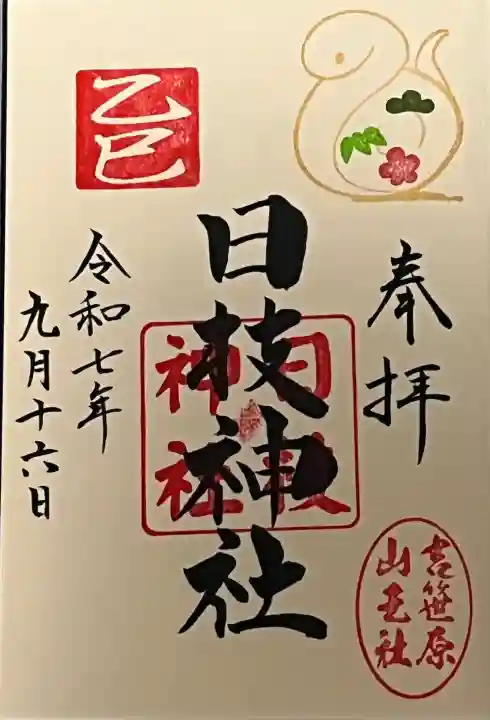 奉拝
日枝神社
日枝神社
吉笹原
山王社
乙巳
令和七年
九月十六日